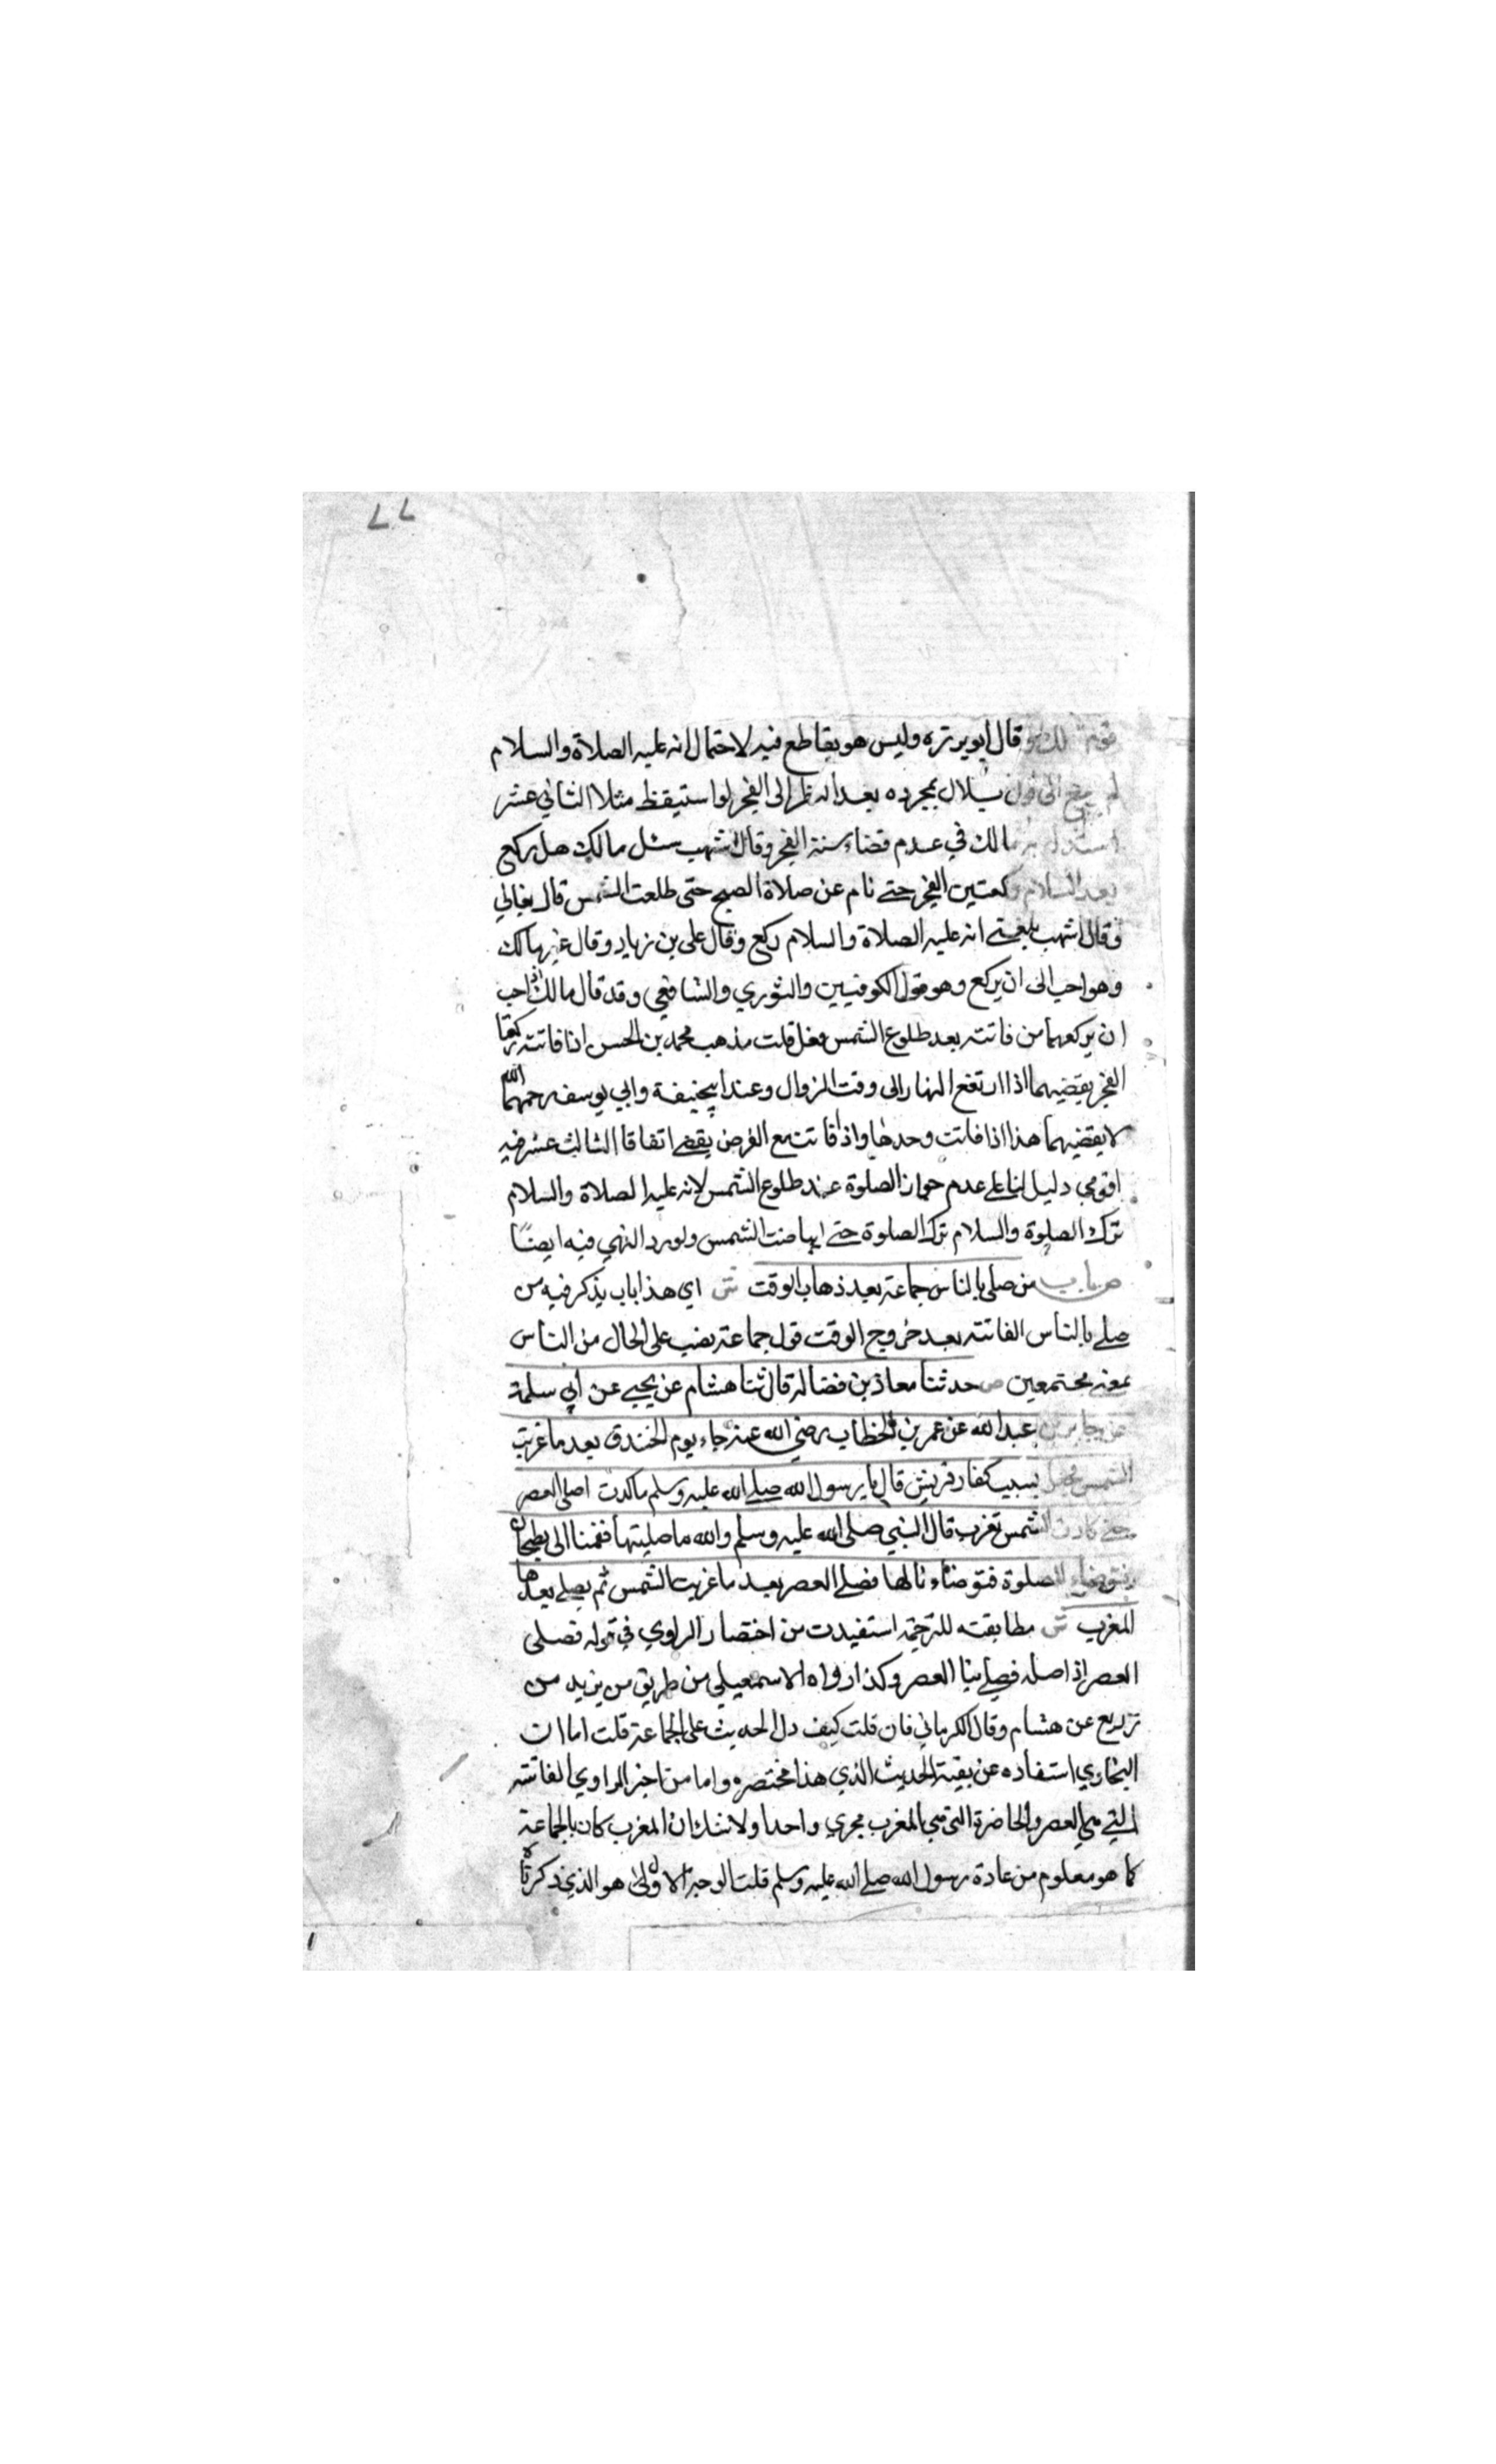 قال ابو بريزه وليس هو بقاطع فيه لاحتمال انه عليه الصلاة والسلام
لم الى قول بلال بمجرده بعد ان نظر الى الفجر لو استيقظ مثلا الثاني عشر
استدل به مالك في عدم قضاء سنة الفجر وقال اشهب سئل مالك هل ركع
بعد السلام ركعتين الفجر حتى نام عن صلاة الصبح حتى طلعت الشمس قال
وقال اشهب بلغني انه عليه الصلاة والسلام ركع وقال علي بن زياد وقال غير مالك
وهو احب الى ان يركع وهو قول الكوفيين والثوري والشافعي وقد قال مالك ان احب
ان يركعهما من فاتته بعد طلوع الشمس فعل قلت مذهب محمد بن الحسن اذا فاتته ركعتا
الفجر يقضيهما اذا ارتفع النهار الى وقت الزوال وعند ابيحنيفة وابي يوسف رحمهما الله
لا يقضيهما هذا اذا فاتت وحدها واذا فاتت مع الفرض يقضى اتفاقا الثالث عشر فيه
اقومي دليل لنا على عدم جواز الصلوة عند طلوع الشمس لانه عليه الصلاة والسلام
ترك الصلوة والسلام ترك الصلوة حتى ابياضت الشمس ولورد النهي فيه ايضا
ص باب من صلى بالناس جماعة بعد ذهاب الوقت ش اي هذا باب يذكر فيه من
صلى بالناس الفائتة بعد خروج الوقت قول جماعة نصب على الحال من الناس
بمعنى مجتمعين ص حدثنا معاذ بن فضالة قال ثنا هشام عن يحيى عن أبي سلمة
عن جابر بن عبد الله عن عمر بن الخطاب رضي الله عنه جاء يوم الخندق بعد ما غربت
الشمس فجعل يسبب كفار قريش قال يا رسول الله صلى الله عليه وسلم ما كدت اصلى العصر
حتى كادت الشمس تغرب قال النبي صلى الله عليه وسلم والله ما صليتها فقمنا الى بطحان
فتوضاء للصلوة فتوضاء نا لها فصلى العصر بعد ما غربت الشمس ثم يصلى بعدها
المغرب ش مطابقته للترجمة استفيدت من اختصار الراوي في قوله فصلى
العصر اذ اصله فصلى بنا العصر وكذا رواه الاسمعيلي من طريق من يزيد من
زريع عن هشام وقال الكرماني فان قلت كيف دل الحديث على الجماعة قلت اما ان
البخاري استفاده عن بقية الحديث الذي هذا مختصره واما من اجز الراوي الفائتة
التي هي العصر والحاضرة التى هي المغرب مجري واحدا ولا شك ان المغرب كان بالجماعة
كما هو معلوم من عادة رسول الله صلى الله عليه وسلم قلت الوجه الاولى هو الذي ذكرناه